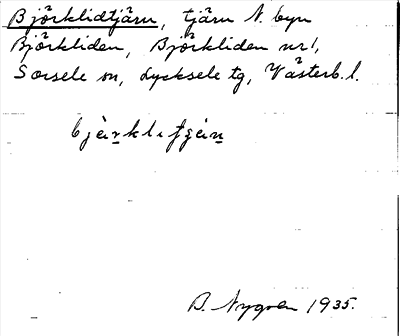 Björklidtjärn, tjärn N. byn
Björkliden, Björkliden nr 1,
Sorsele sn, Lycksele tg, Västerb. l.
B. Nygren 1935.